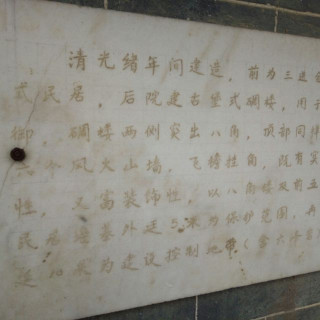 清光绪年间建造，前为三进
式民居，后院建古堡式碉楼，用于
御，碉楼两侧突出八角，顶部同样
六个风火山墙，飞檐挂角，既有实
性，又富装饰性，以八角楼及前五
民居墙基外延三米为保护范围，再
延10米为建设控制地